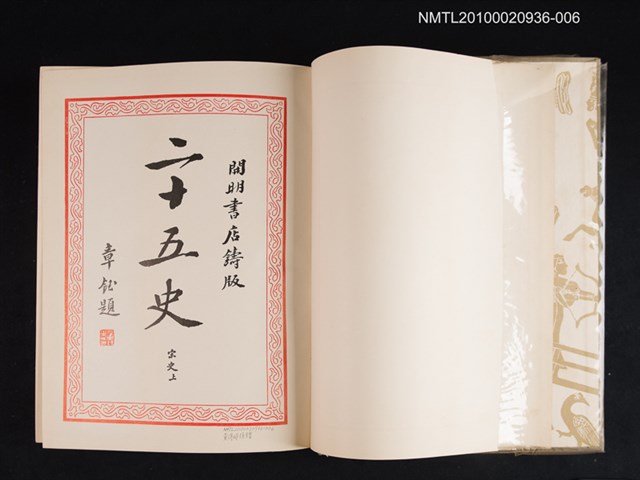 NMTL20100020936-006
開明書店鑄版
二十五史
宋史上
章鈺題